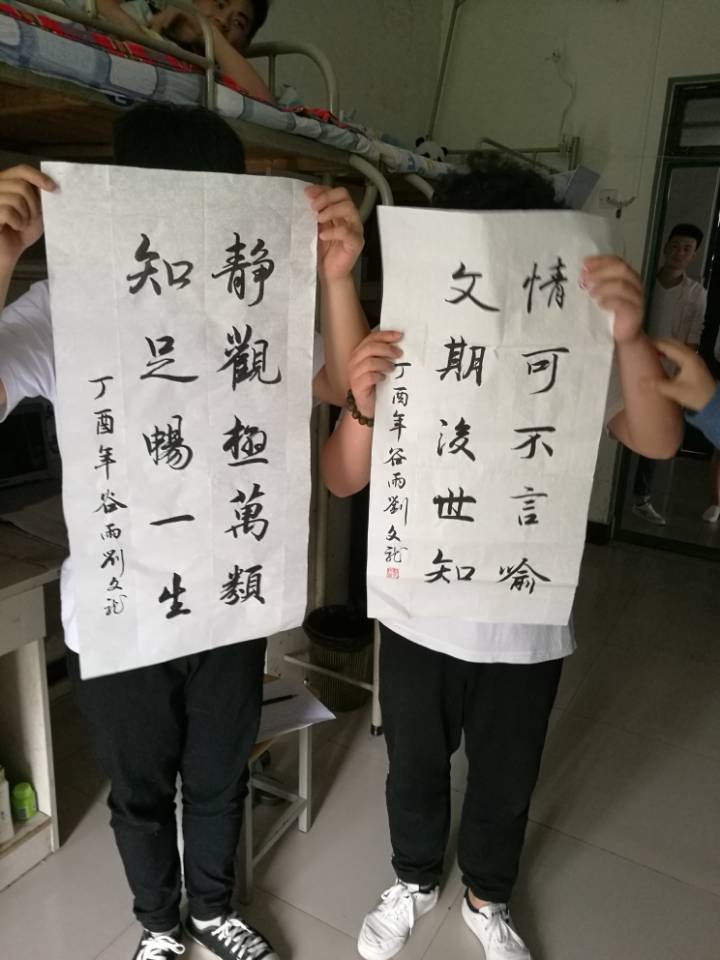 靜觀極萬類
知足暢一生
丁酉年谷雨劉文龍
情可不言喻
文期後世知
丁酉年谷雨劉文龍